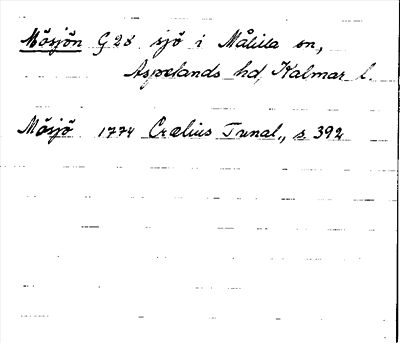 Mösjön G28 sjö i Målilla sn,
Aspelands hd, Kalmar l.
Mösjö 1774 Crælius Tunal., s 392